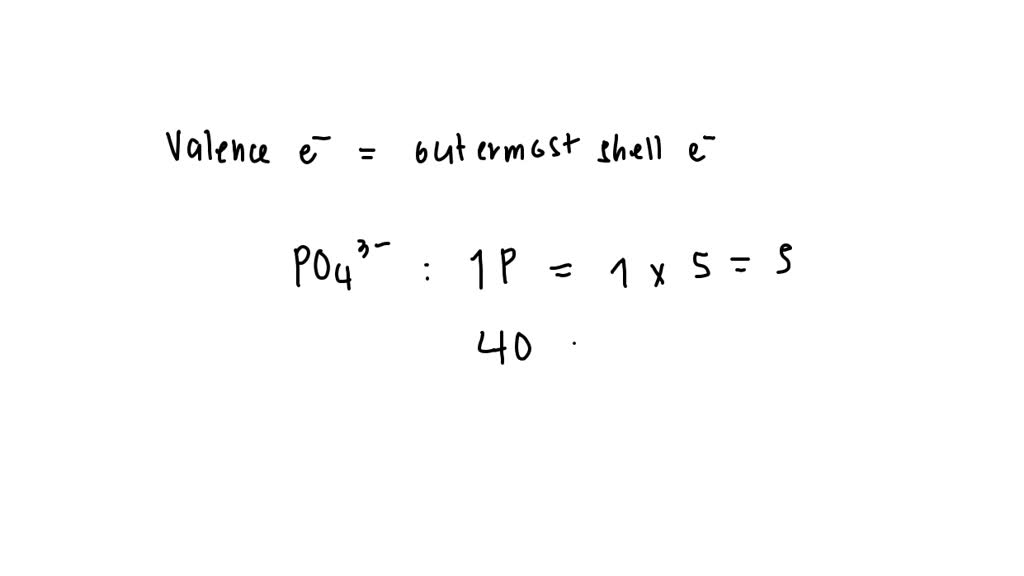 Valence e⁻ = outermost shell e⁻
PO₄³⁻ : 1P = 1 x 5 = 5
4O